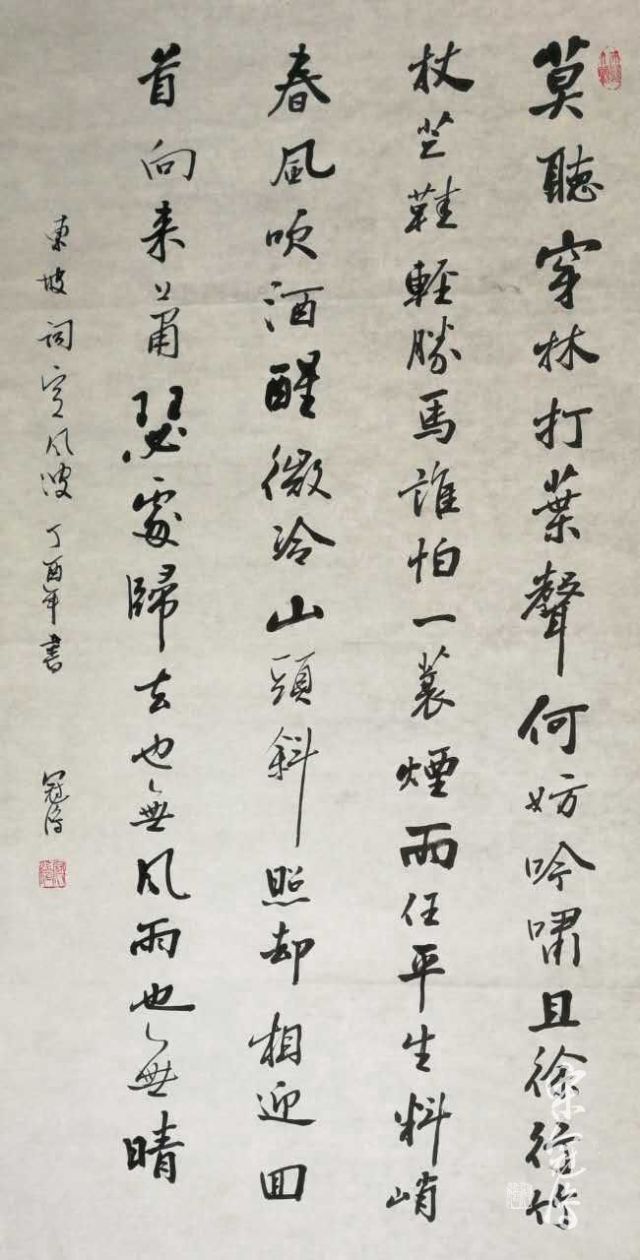 莫聽穿林打葉聲何妨吟嘯且徐行竹
杖芒鞋輕勝馬誰怕一蓑煙雨任平生料峭
春風吹酒醒微冷山頭斜照却相迎回
首向来蕭瑟處歸去也無風雨也無晴
東坡詞定风波丁酉年書